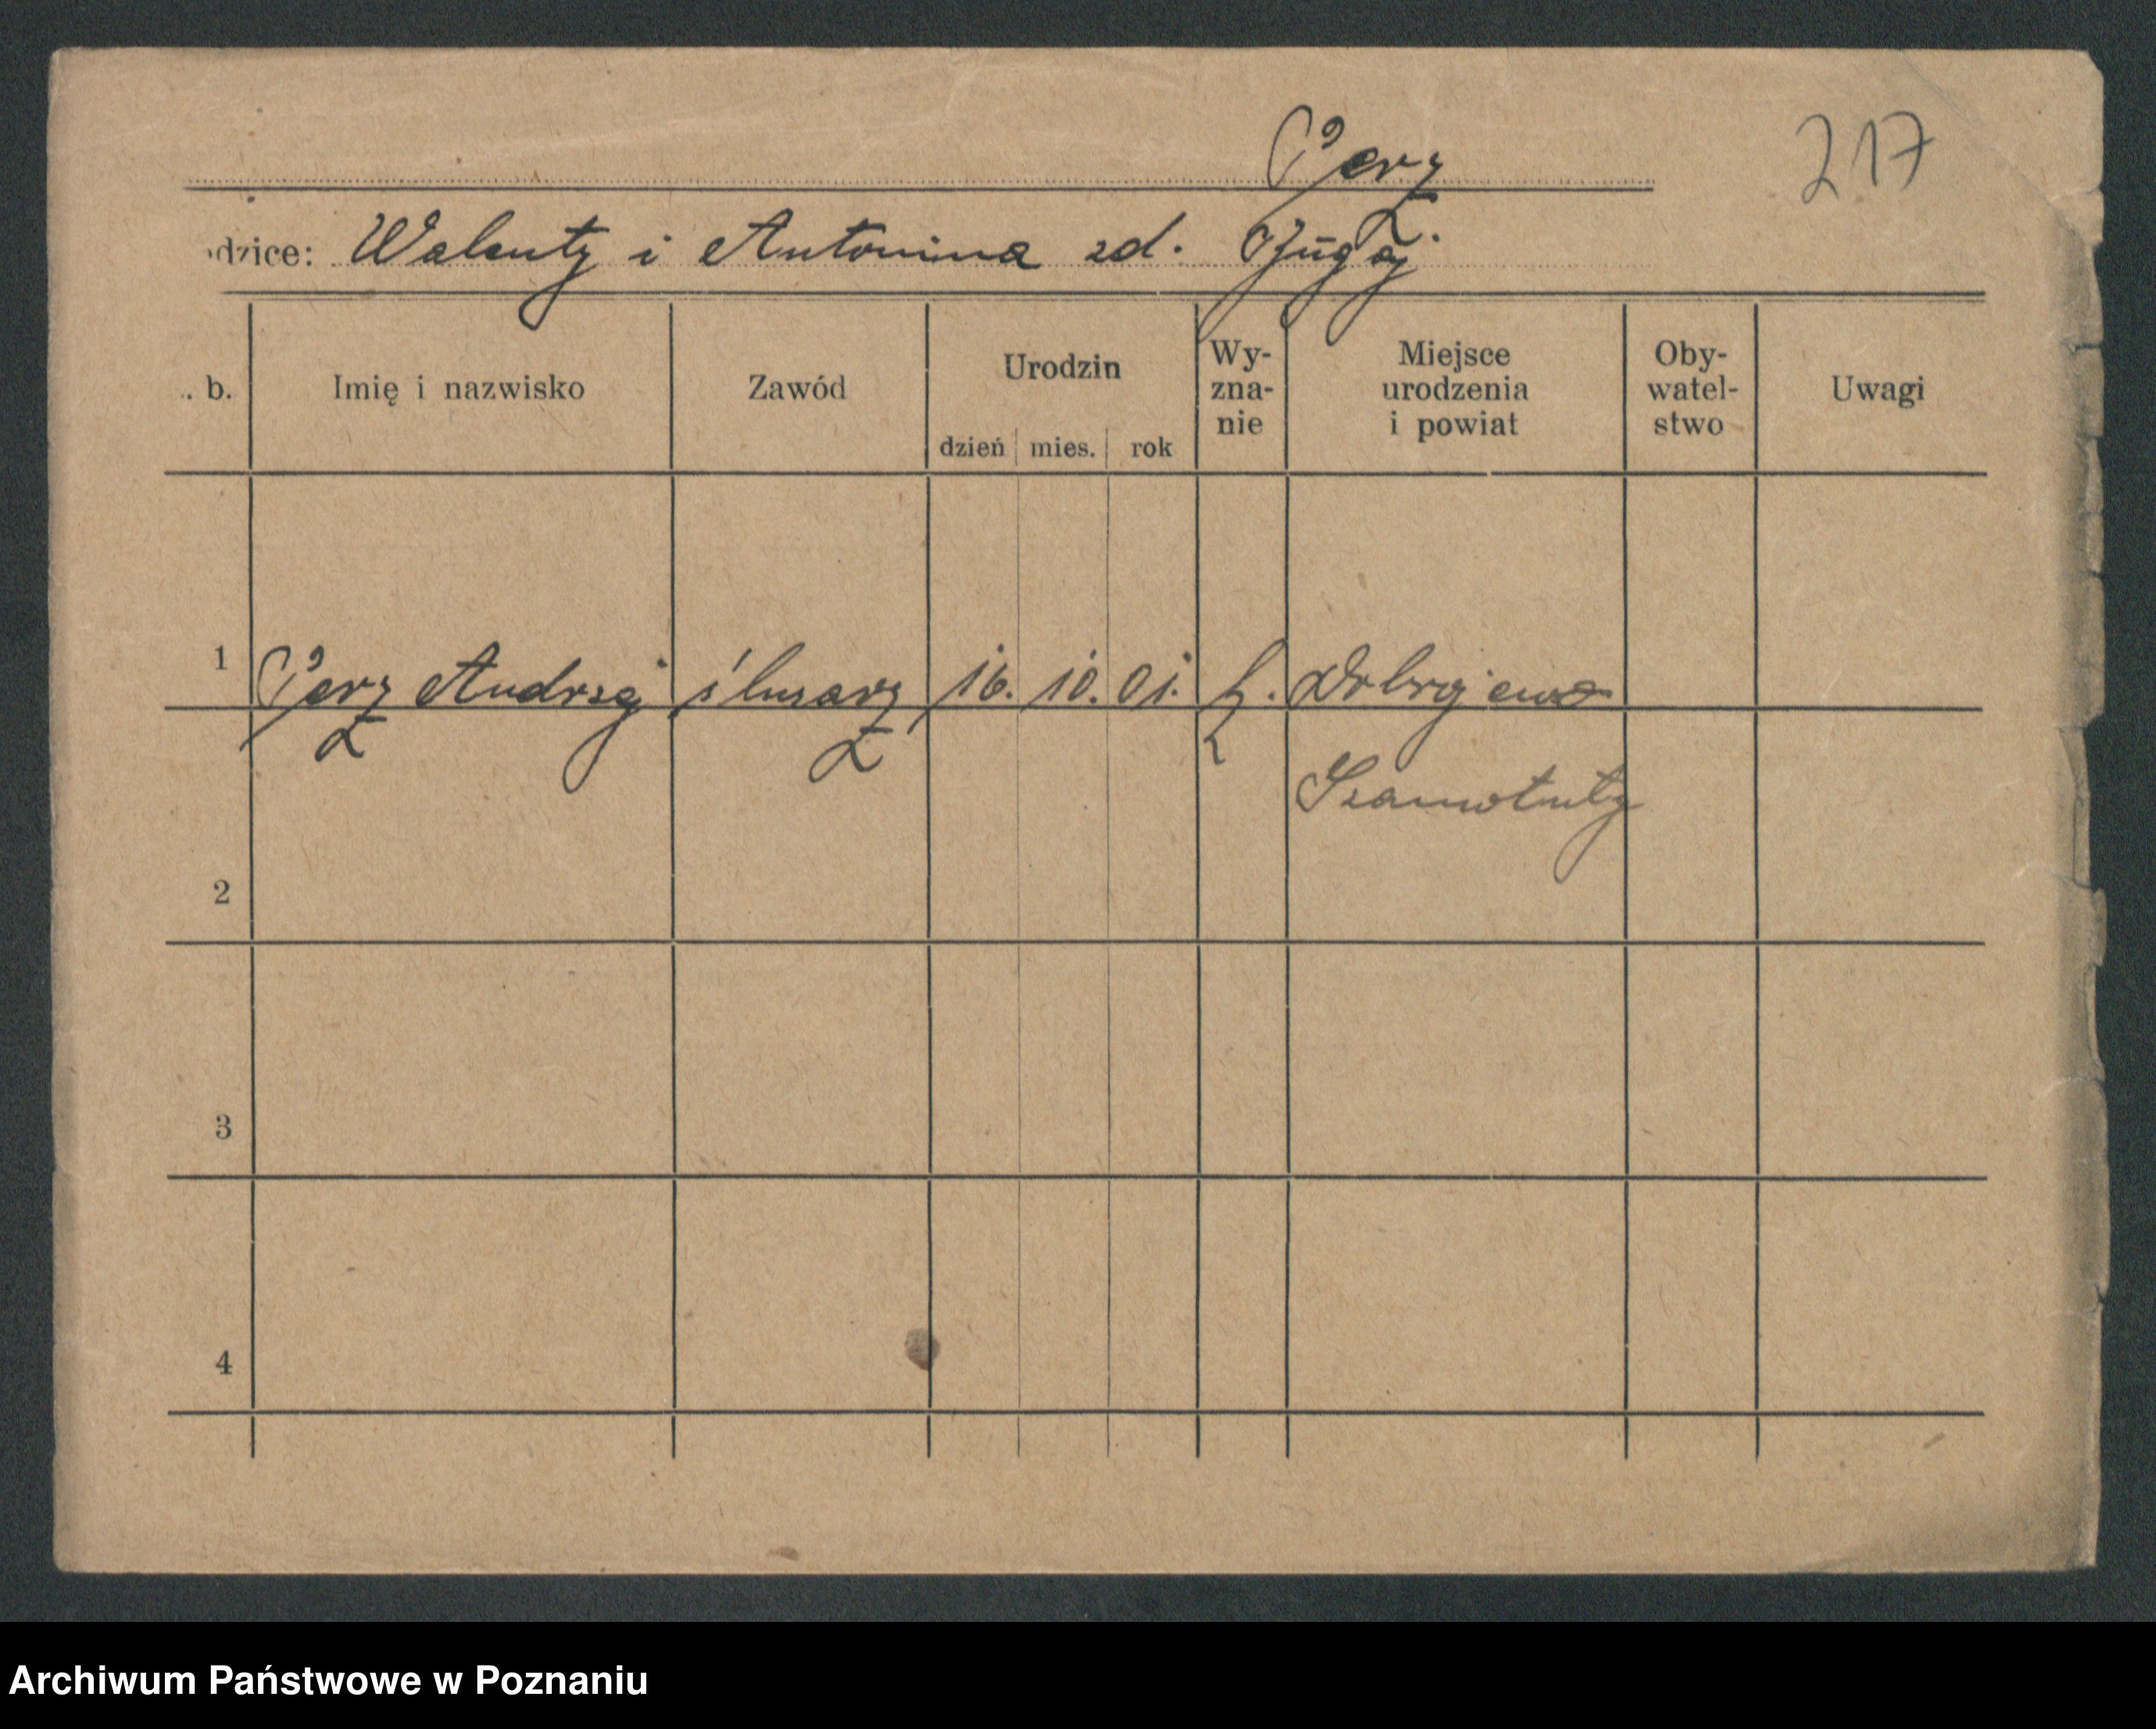 Perz
217
dzice: Walenty i Antonina zd.
. b.
Imię i nazwisko
Zawód
Urodzin
dzień mies. rok
Wy-
zna-
nie
Miejsce
urodzenia
i powiat
Oby-
watel-
stwo
Uwagi
1 Perz Andrzej ślusarz 16. 10. 01. k. Dobrojewo
Szamotuły
2
3
4
Archiwum Państwowe w Poznaniu